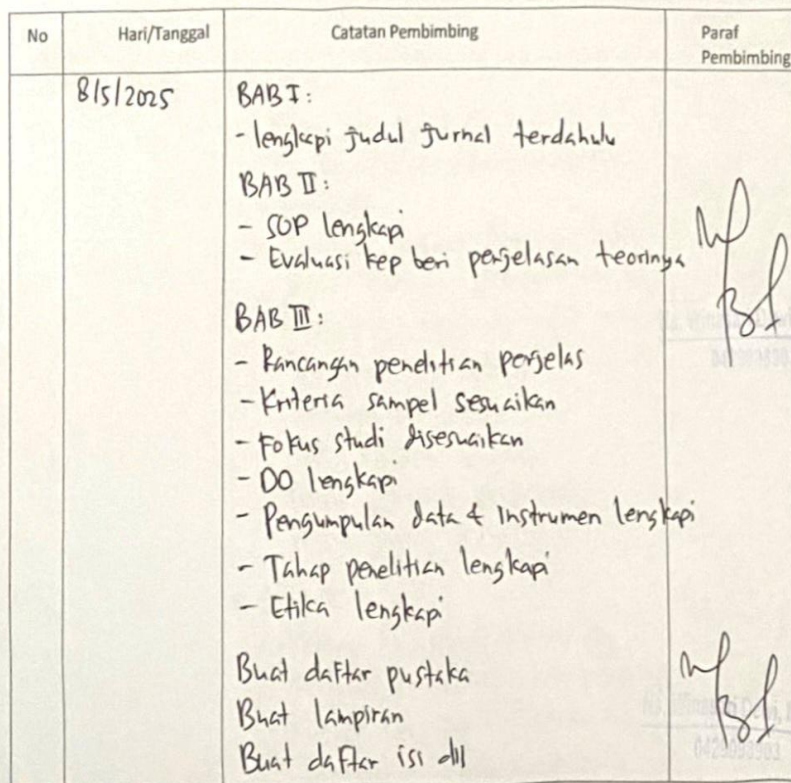 No Hari/Tanggal Catatan Pembimbing Paraf
Pembimbing
8/5/2025 BAB I:
- lengkapi judul jurnal terdahulu
BAB II:
- SOP lengkapi
- Evaluasi kep beri penjelasan teorinya
BAB III:
- Rancangan penelitian perjelas
- Kriteria sampel sesuaikan
- Fokus studi disesuaikan
- DO lengkapi
- Pengumpulan data & instrumen lengkapi
- Tahap penelitian lengkapi
- Etika lengkapi
Buat daftar pustaka
Buat lampiran
Buat daftar isi dll